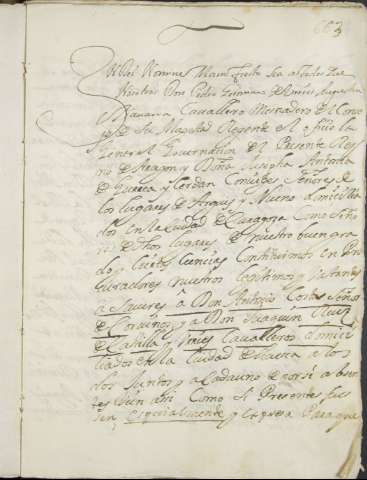 603
In Dei Nomine Manifiesto sea a todos que
Nosotros Don Pedro
Navarra Cavallero Mesnadero del Conse
de Su Magestad Regente el oficio la
General Governacion del Presente Rey
no de Aragon y Doña Josepha Antonia
de Guerea y Cerdan Conjuges Señores de
los lugares de Araus y Nueno domicilia
dos en la Ciudad de Zaragoza Como Seño
res de dhos lugares de nuestro buen gra
do y ciertas ciencias Constituimos en Pro
curadores nuestros legitimos y
a Saver es à Don Antonio Cortes Señor
de y a Don Joaquin Ruiz
de Castilla y Cavalleros domici
liados en la Ciudad de Huesca a los
dos Juntos y a Cadauno de por si absen
tes bien asi Como si Presentes fues
sen Especialmente y Expresa Para que